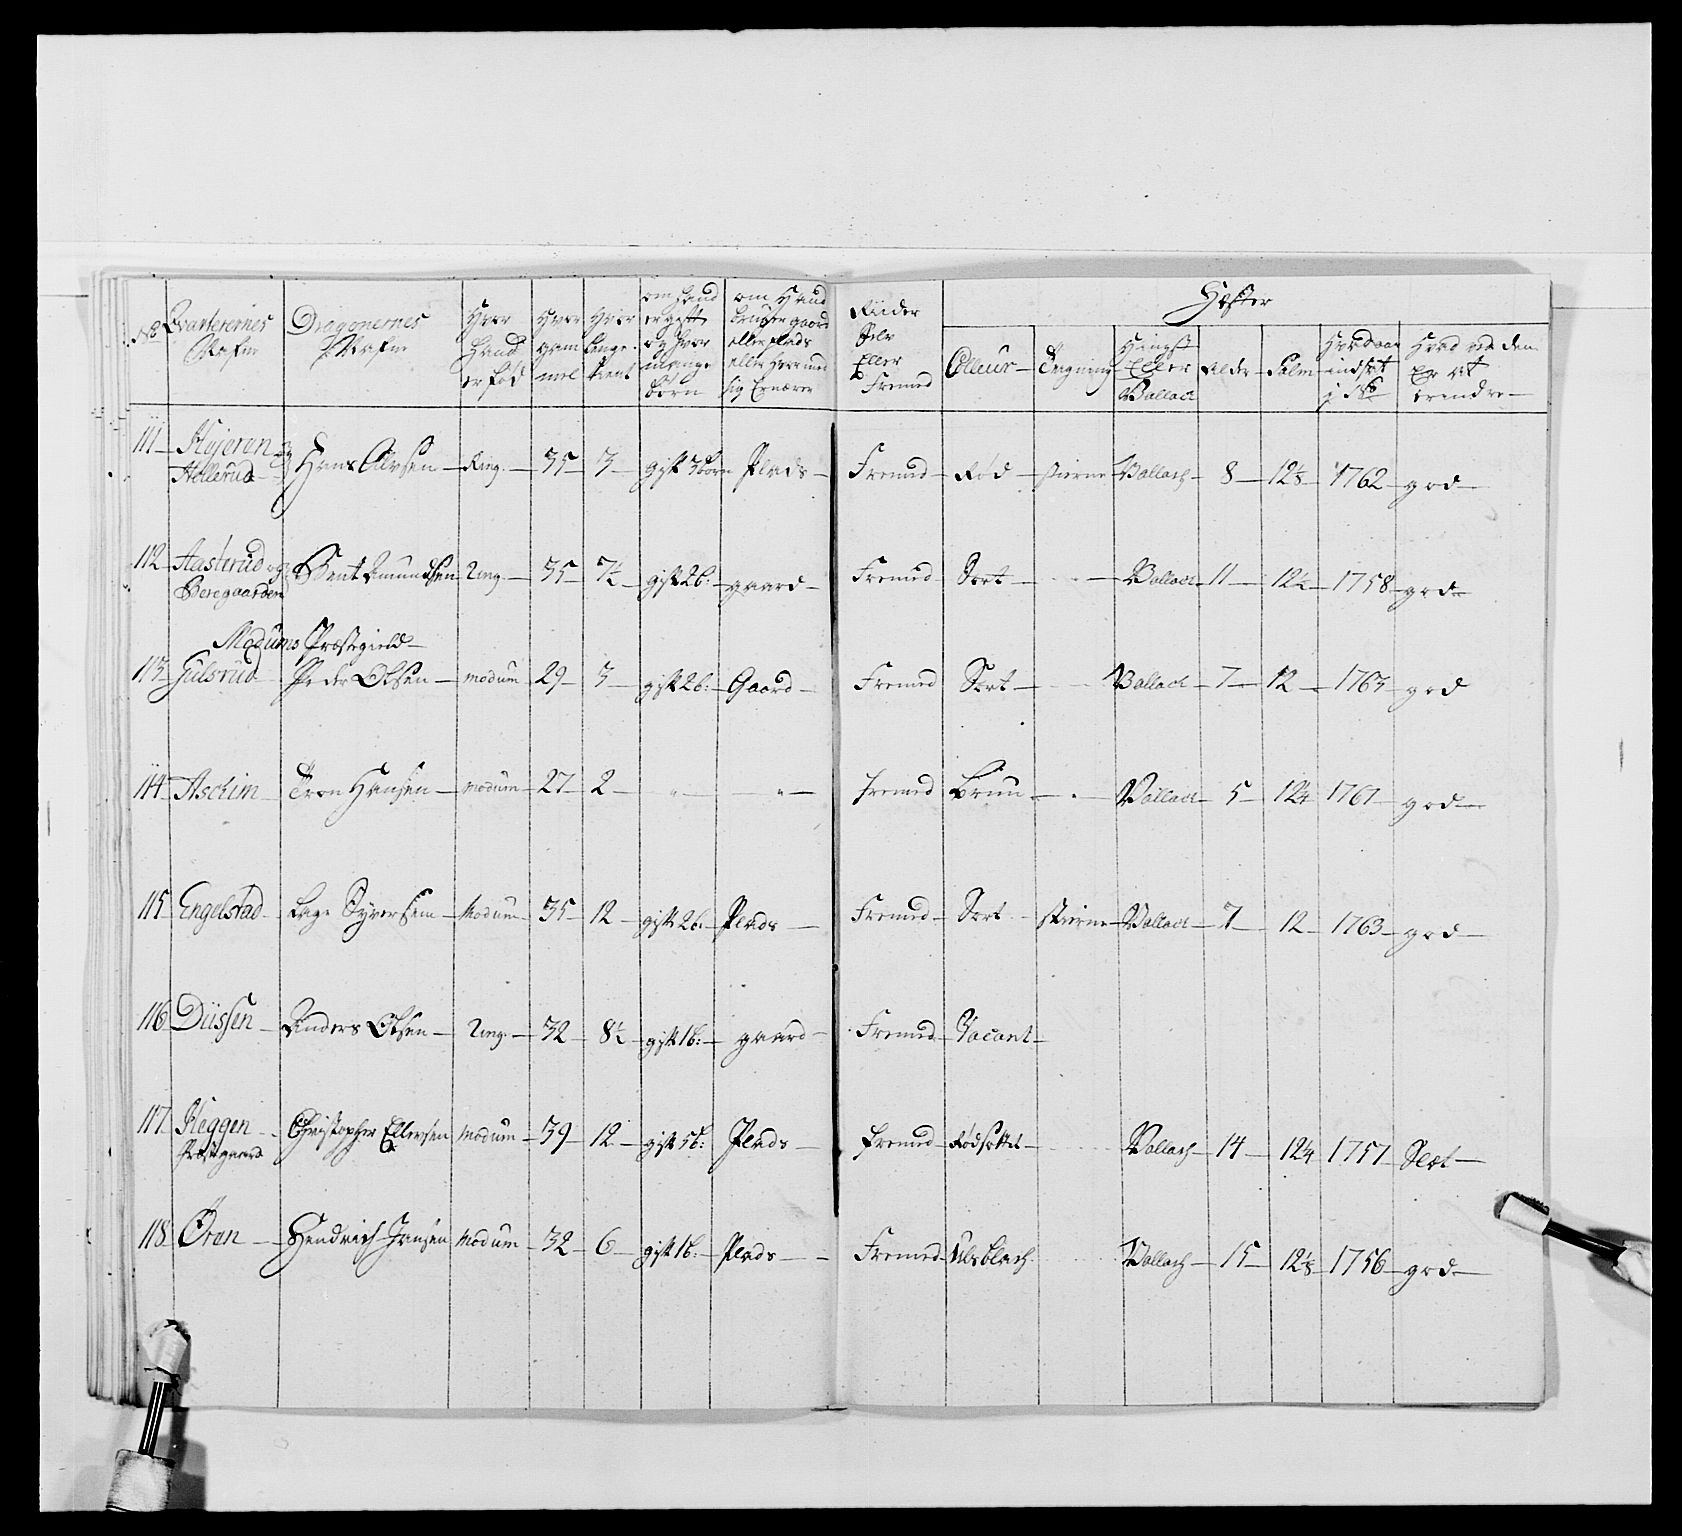 No Qvarterernes Nafne | Dragonernes Nafne | Hvor Hand er fød | Hvor gammel | Hvor lenge tient | om Hand er gift og hvor mange børn | om Hand bruger gaard eller plads eller hvormed sig Ernærer | Riider Selv Eller Fremed | Hæster
Colleur | Teigning | Hingst Eller Vallach | Alder | Palm | Hvad aar indsat i No | Hvad ved dem Er at erindre
111 Højeren og Hellerud | Hans Alvsen | Ring. | 35 | 3 | gift 3 børn | Plads | Fremed | Rød | stierne | Vallach | 8 | 12⅛ | 1762 | god
112 Aasterud og Beregaarden | Bent Amundsen | Ring. | 35 | 7½ | gift 2b: | gaard | Fremed | Sort | - | Vallach | 11 | 12½ | 1758 | god
Modums Præstegield
113 Gulsrud | Peder Olsen | modum | 29 | 3 | gift 2b: | Gaard | Fremed | Sort | - | Vallach | 7 | 12 | 1763 | god
114 Aschim | Tron Hansen | modum | 27 | 2 | " | " | Fremed | Brun | - | Vallach | 5 | 12¼ | 1761 | god
115 Engelstad | Lage Syversen | Modum | 35 | 12 | gift 2b: | Plads | Fremed | Sort | stierne | Vallach | 7 | 12 | 1763 | god
116 Düssen | Anders Olsen | Ring. | 32 | 8½ | gift 1b: | gaard | Fremed | Vacant
117 Heggen Præstegaard | Christopher Ellevsen | Modum | 39 | 12 | gift 5b: | Plads | Fremed | Rød | Vallach | 14 | 12¼ | 1757 | Slet
118 Øren | Hendrich Jansen | Modum | 32 | 6 | gift 1b: | Plads | Fremed | Ulsblach | Vallach | 15 | 12⅛ | 1756 | god